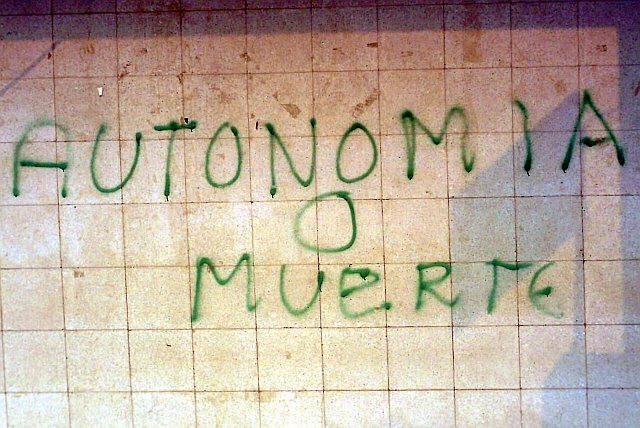 AUTONOMIA
O
MUERTE